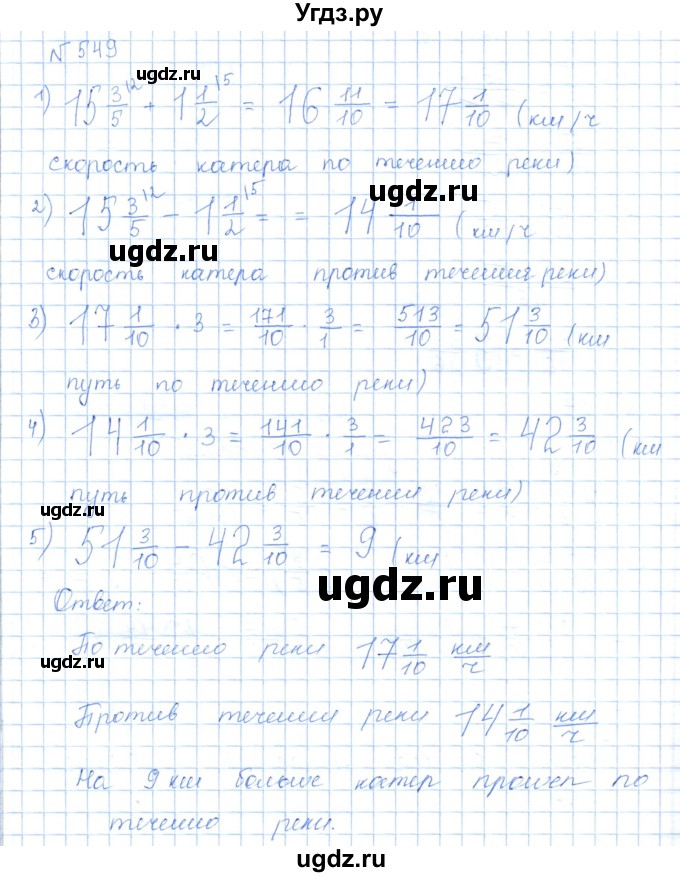 Угдз.ру
№ 549
ugdz.ru
1) 15 3/5 ¹² + 1 1/2 ¹⁵ = 16 11/10 = 17 1/10 (км/ч
ugdz.ru
скорость катера по течению реки)
ugdz.ru
2) 15 3/5 ¹² - 1 1/2 ¹⁵ = = 14 1/10 (км/ч
ugdz.ru
скорость катера против течения реки)
3) 17 1/10 · 3 = 171/10 · 3/1 = 513/10 = 51 3/10 (км
ugdz.ru
путь по течению реки)
4) 14 1/10 · 3 = 141/10 · 3/1 = 423/10 = 42 3/10 (км
путь против течения реки)
ugdz.ru
5) 51 3/10 - 42 3/10 = 9 (км
ugdz.ru
Ответ:
По течению реки 17 1/10 км/ч
ugdz.ru
Против течения реки 14 1/10 км/ч
На 9 км больше катер прошел по
ugdz.ru
течению реки.
ugdz.ru